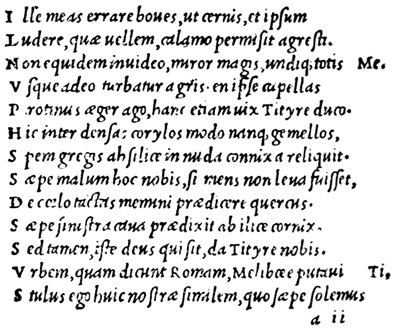 I lle meas errare boues, ut cernis, et ipsum
L udere, quæ uellem, calamo permisit agresti.
N on equidem inuideo, miror magis, undiq; totis Me.
V sque adeo turbatur agris. en ipse capellas
P rotinus æger ago, hanc etiam uix Tityre duco.
H ic inter densas corylos modo nanq; gemellos,
S pem gregis ah silice in nuda connixa reliquit.
S æpe malum hoc nobis, si mens non leua fuisset,
D e cœlo tactas memini prædicere quercus.
S æpe sinistra caua prædixit ab ilice cornix.
S ed tamen, iste deus qui sit, da Tityre nobis.
V rbem, quam dicunt Romam, Melibœe putaui Ti,
S tulus ego huic nostræ similem, quo sæpe solemus
a ii